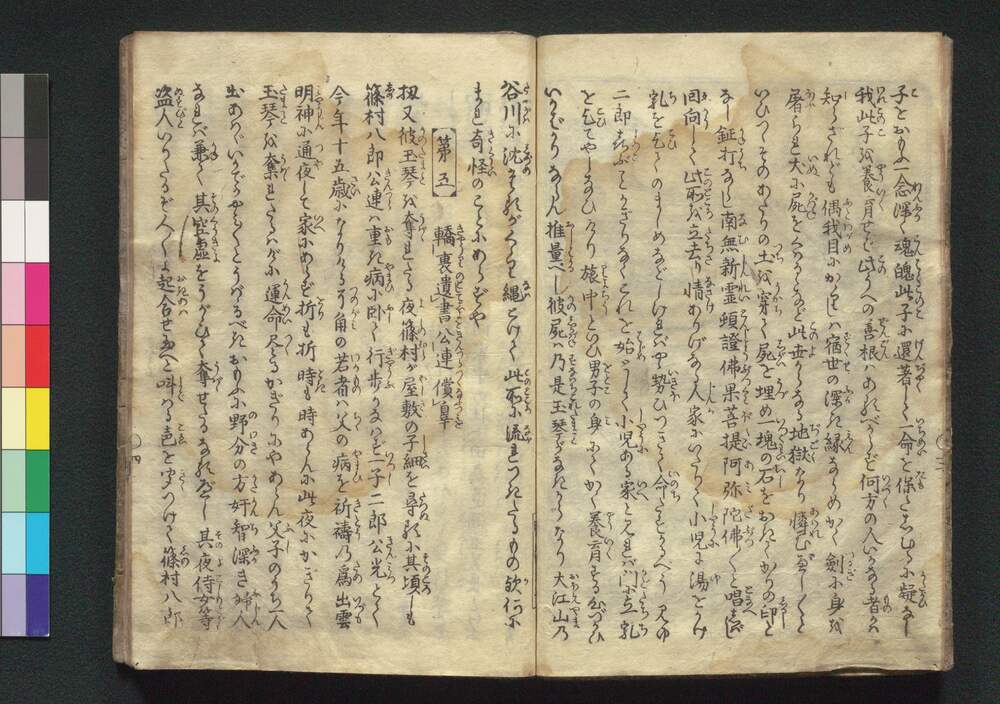 子とおもふ一念深く魂魄此子に還著して一命を保とこしむるに疑なし
我此子を養育せば此うへの善根はあるべからず何方の人いかなる者かは
知らざれども偶我目にかゝりしは宿世の深き縁なるめかく劔に身を
屠られ犬に屍をくらはるゝなど此世からなる地獄なり憐むべし〳〵と
いひつゝそのあたりの土を穿て屍を埋め一塊の石をおきてかりの印と
なし鉦打ならし南無新霊頓證佛果菩提阿弥陀佛〳〵と唱へて
回向して此所を立去り情ありげなる人家にいたりて小児に湯をこひ
乳を乞てのましめなどしければや勢ひつきて命たすかるべう見ゆ
二郎よろこぶことかぎりなくこれを始として小児ある家と見れば門に立乳
を乞てやしなひけり旅中といひ男子の身にてかく養育する心づかひ
いかばかりならん推量べし彼屍は乃是玉琴がなきからなり大江山乃
谷川に沈
縄とけて此所に流れつきたるもの歟何に
まれ奇怪のことにあらずや
第五 轎裏遺書公連償皐
扨又彼玉琴を奪れたる夜篠村が屋敷の子細を尋るに其頃しも
篠村八郎公連は重き病に臥て行歩かなはず一子二郎公光とて
今年十五歳になりける角の若者は父の病を祈祷乃為出雲
明神に通夜して家にあらず折も折時も時あらんに此夜にかぎりて
玉琴を奪れたるはが運命尽るかぎりにやあらん父子のうち一人
出あはゞいかでかやう〳〵とうばゝるべきおもふに野分の方奸智深き婦人
なれば兼て其空虚をうかゞひて奪せたるなるべし其夜侍女等
盗人いりたるぞ人〳〵よ起合せ給へと叫はる声を聞つけて篠村八郎
四